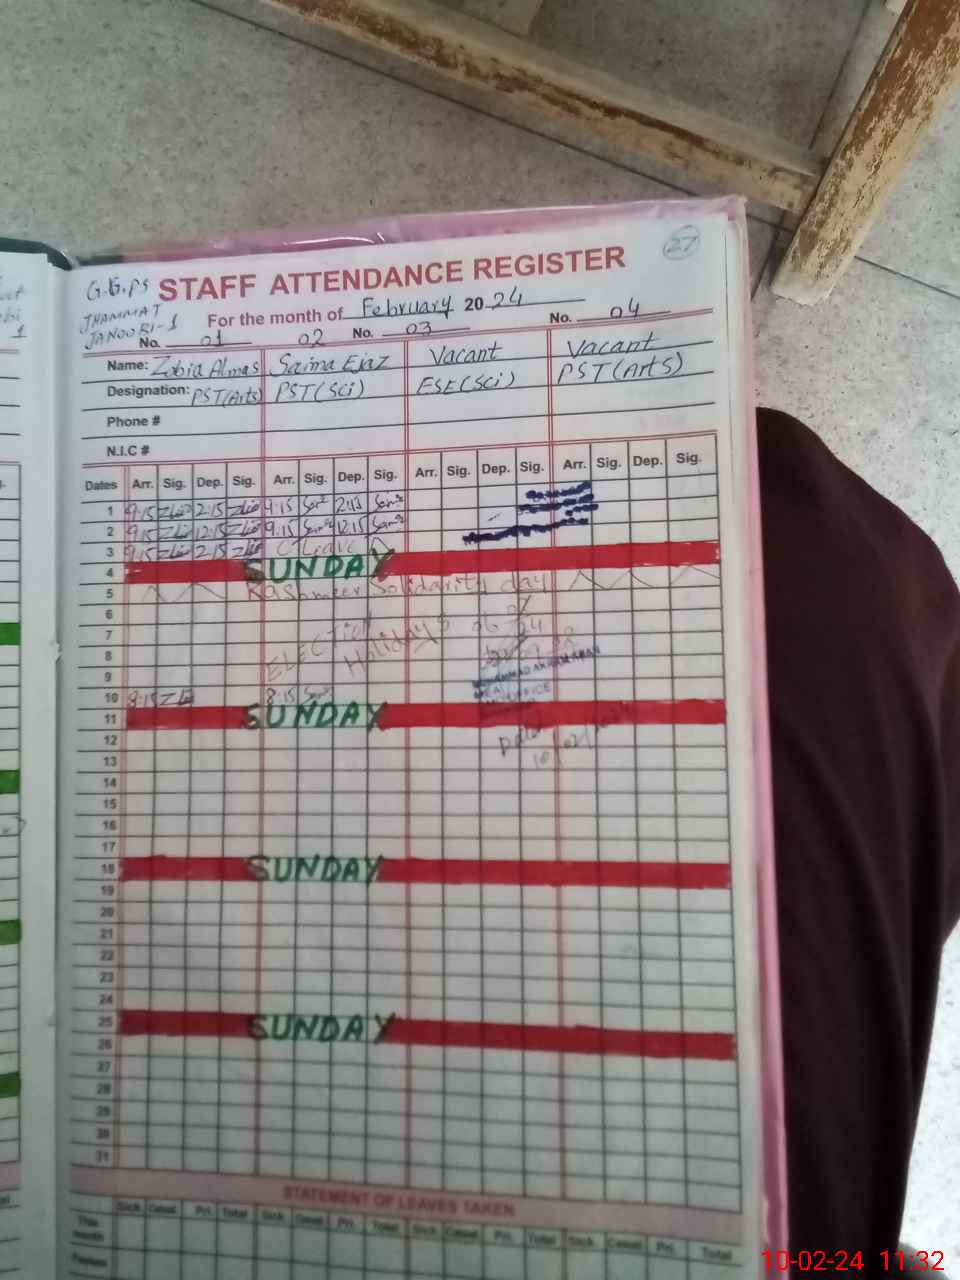 27
G.G.PS STAFF ATTENDANCE REGISTER
JHAMMAT
JANOOBI-1
For the month of February 2024
No. 01 02 No. 03 No. 04
Name: Zobia Almas Saima Ejaz Vacant Vacant
Designation: PST(Arts) PST(Sci) ESE(Sci) PST(Arts)
Phone #
N.I.C #
Dates Arr. Sig. Dep. Sig. Arr. Sig. Dep. Sig. Arr. Sig. Dep. Sig. Arr. Sig. Dep. Sig.
1 9:15 2:15 9:15 2:15
2 9:15 12:15 9:15 12:15
3 9:15 2:15 C Leave
4 SUNDAY
5 Kashmeer Solidarity day
6
7
8 ELECTION Holidays
9
10 8:15 8:15
11 SUNDAY
12
13
14
15
16
17
18 SUNDAY
19
20
21
22
23
24
25 SUNDAY
26
27
28
29
30
31
STATEMENT OF LEAVES TAKEN
Sick Casual Pri. Total Sick Casual Pri. Total Sick Casual Pri. Total Sick Casual Pri. Total
This
month
10-02-24 11:32